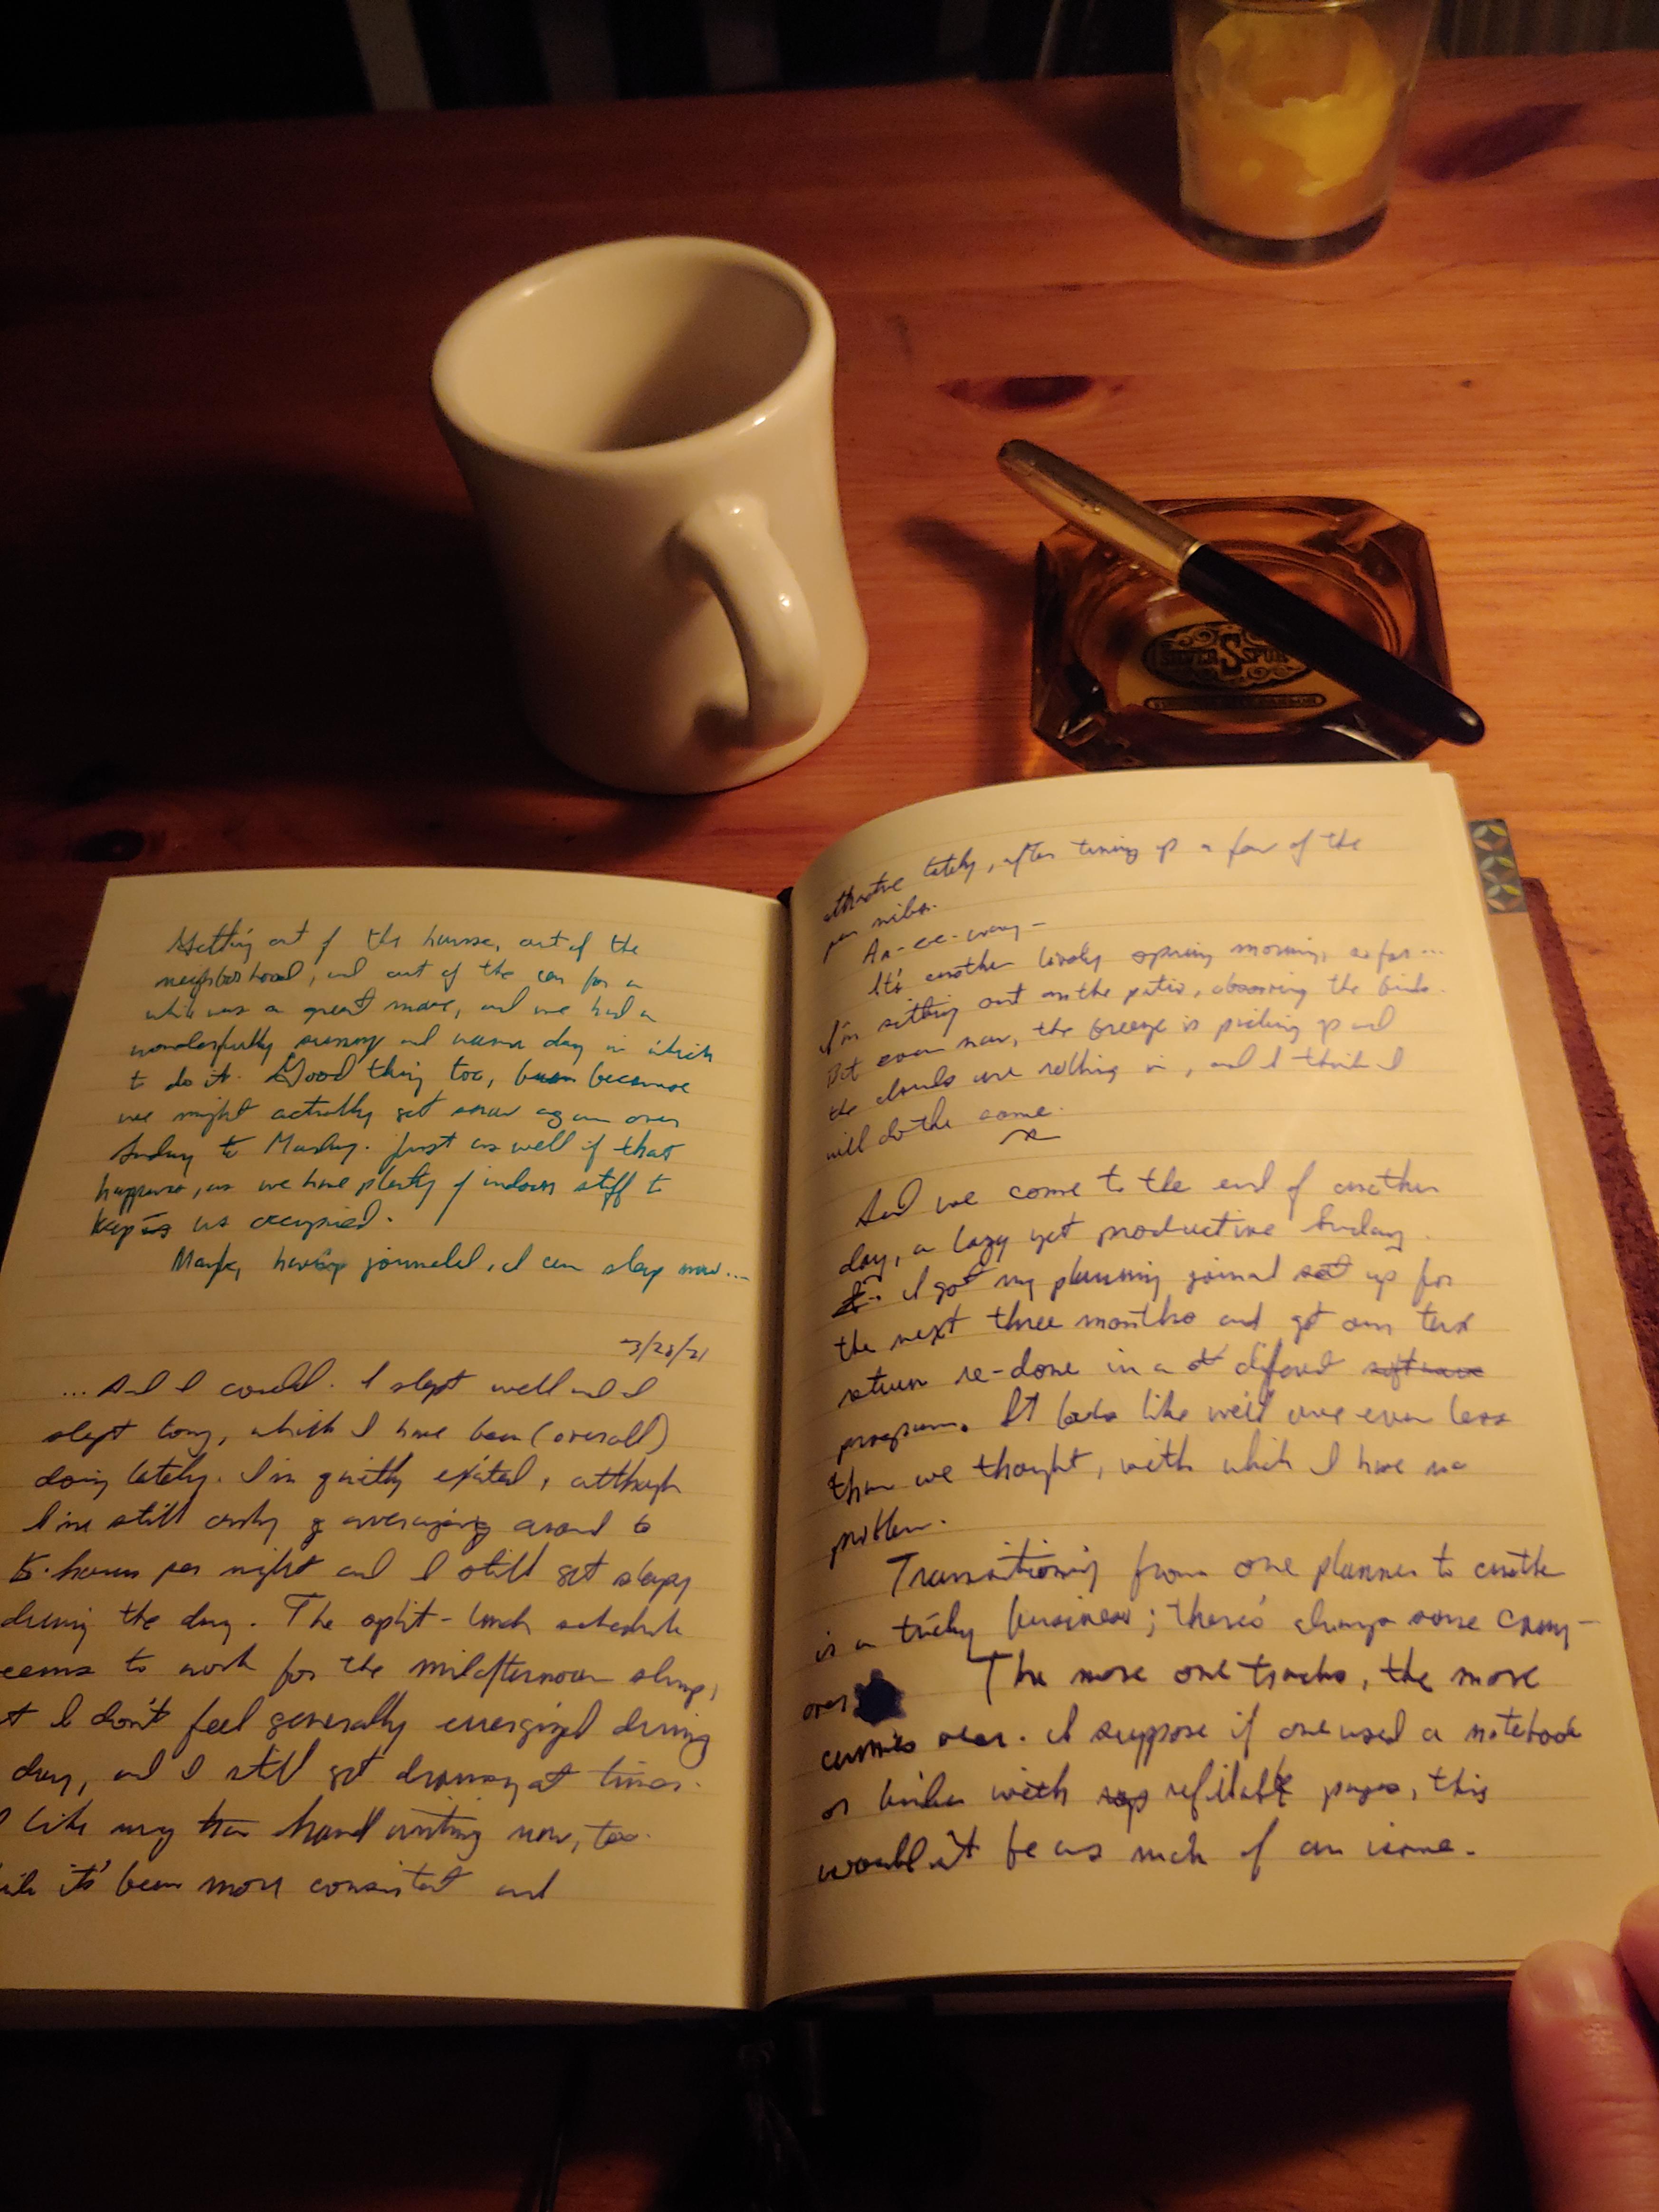 SILVER S SPUR
Getting out of the house, out of the
neighborhood, and out of the car for a
while was a great move, and we had a
wonderfully sunny and warm day in which
to do it. Good thing too, because
we might actually get snow again over
Sunday to Monday. Just as well if that
happens, as we have plenty of indoor stuff to
keep us occupied.
Maybe, having journaled, I can sleep now...
3/28/21
...And I could. I slept well and I
slept long, which I have been (overall)
doing lately. I'm quietly excited, although
I'm still only averaging around 6
hours per night and I still get sleepy
during the day. The split-lunch schedule
seems to work for the midafternoon slump,
I don't feel generally energized during
day, and I still get drowsy at times.
I like my handwriting now, too.
it's been more consistent and
attractive lately, after tuning up a few of the
pen nibs.
An-ee-way-
It's another lovely spring morning, so far...
I'm sitting out on the patio, observing the birds.
But even now, the breeze is picking up and
the clouds are rolling in, and I think I
will do the same.
And we come to the end of another
day, a lazy yet productive Sunday.
I got my planning journal set up for
the next three months and got our tax
return re-done in a different software
program. It looks like we'll owe even less
than we thought, with which I have no
problem.
Transitioning from one planner to another
is a tricky business; there's always some carry-
over. The more one tracks, the more
carries over. I suppose if one used a notebook
or binder with refillable pages, this
wouldn't be as much of an issue.